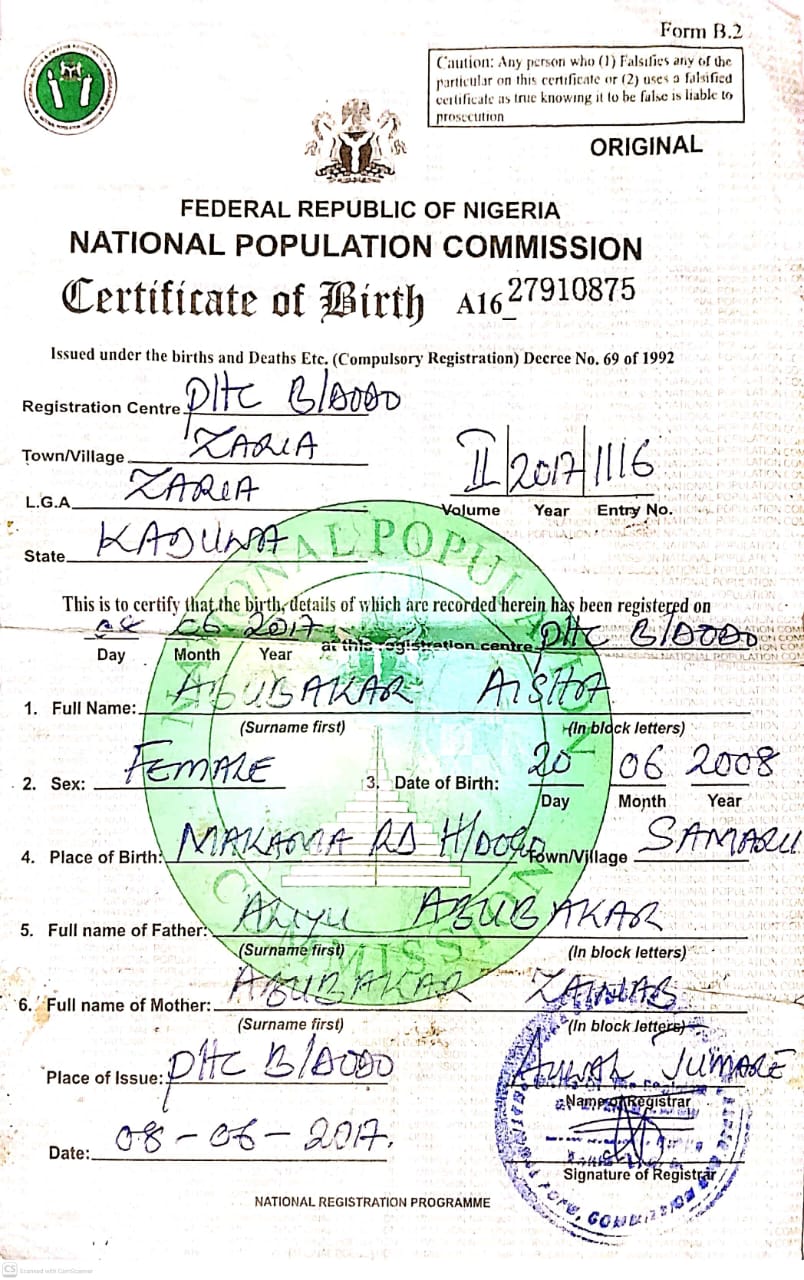 Form B.2
Caution: Any person who (1) Falsifies any of the
particular on this certificate or (2) uses a falsified
certificate as true knowing it to be false is liable to
prosecution
ORIGINAL
FEDERAL REPUBLIC OF NIGERIA
NATIONAL POPULATION COMMISSION
Certificate of Birth A16_27910875
Issued under the births and Deaths Etc. (Compulsory Registration) Decree No. 69 of 1992
Registration Centre PHC B/DODO
Town/Village ZARIA
L.G.A ZARIA II 2017 1116
Volume Year Entry No.
State KADUNA
This is to certify that the birth, details of which are recorded herein has been registered on
08 06 2017 at this registration centre PHC B/DODO
Day Month Year
1. Full Name: ABUBAKAR AISHA
(Surname first) (In block letters)
2. Sex: FEMALE 3. Date of Birth: 20 06 2008
Day Month Year
4. Place of Birth: MAKAMA RD H/DOGO Town/Village SAMARU
5. Full name of Father: ALIYU ABUBAKAR
(Surname first) (In block letters)
6. Full name of Mother: ABUBAKAR ZAINAB
(Surname first) (In block letters)
Place of Issue: PHC B/DODO AUWAL JUMARE
Name of Registrar
Date: 08-06-2017.
Signature of Registrar
NATIONAL REGISTRATION PROGRAMME
CS Scanned with CamScanner